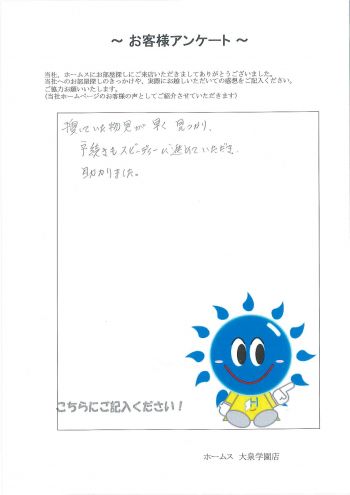 ～ お客様アンケート ～
当社、ホームスにお部屋探しにご来店いただきましてありがとうございました。
当社へのお部屋探しのきっかけや、実際にお越しいただいての感想をご記入ください。
ご協力お願いいたします。
(当社ホームページのお客様の声としてご紹介させていただきます)
捜していた物見が早く見つかり、
手続きもスピーディーに進めていただき、
助かりました。
こちらにご記入ください！
ホームス 大泉学園店